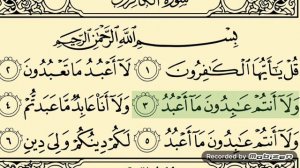 سُورَةُ الْكَافِرُونَ
بِسْمِ اللَّهِ الرَّحْمَٰنِ الرَّحِيمِ
قُلْ يَا أَيُّهَا الْكَافِرُونَ ١ لَا أَعْبُدُ مَا تَعْبُدُونَ ٢
وَلَا أَنتُمْ عَابِدُونَ مَا أَعْبُدُ ٣ وَلَا أَنَا عَابِدٌ مَّا عَبَدتُّمْ ٤
وَلَا أَنتُمْ عَابِدُونَ مَا أَعْبُدُ ٥ لَكُمْ دِينُكُمْ وَلِيَ دِينِ ٦
RECORDED WITH
MOBIZEN